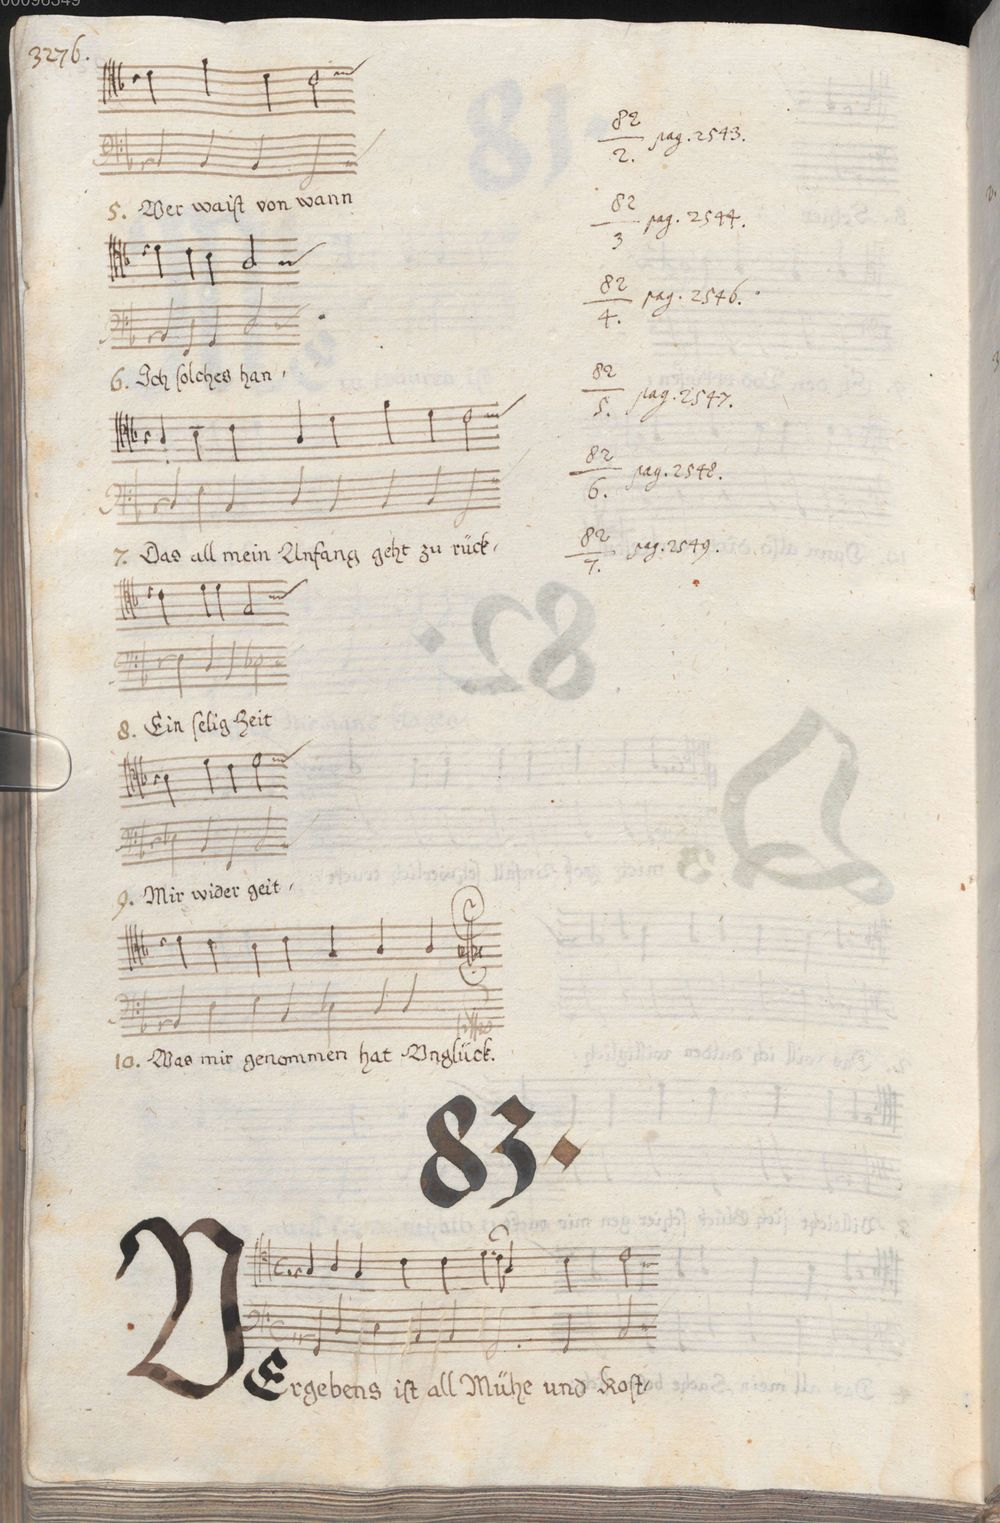 00096349
3276.
5. Wer waist von wann
6. Ich solches han,
7. Das all mein Anfang geht zu rück,
8. Ein selig Zeit
9. Mir wider geit,
10. Was mir genommen hat Vnglück.
82
2. pag. 2543.
82
3 pag. 2544.
82
4. pag. 2546.
82
5. pag. 2547.
82
6. pag. 2548.
82
7. pag. 2549.
83.
VErgebens ist all Mühe und Kost,